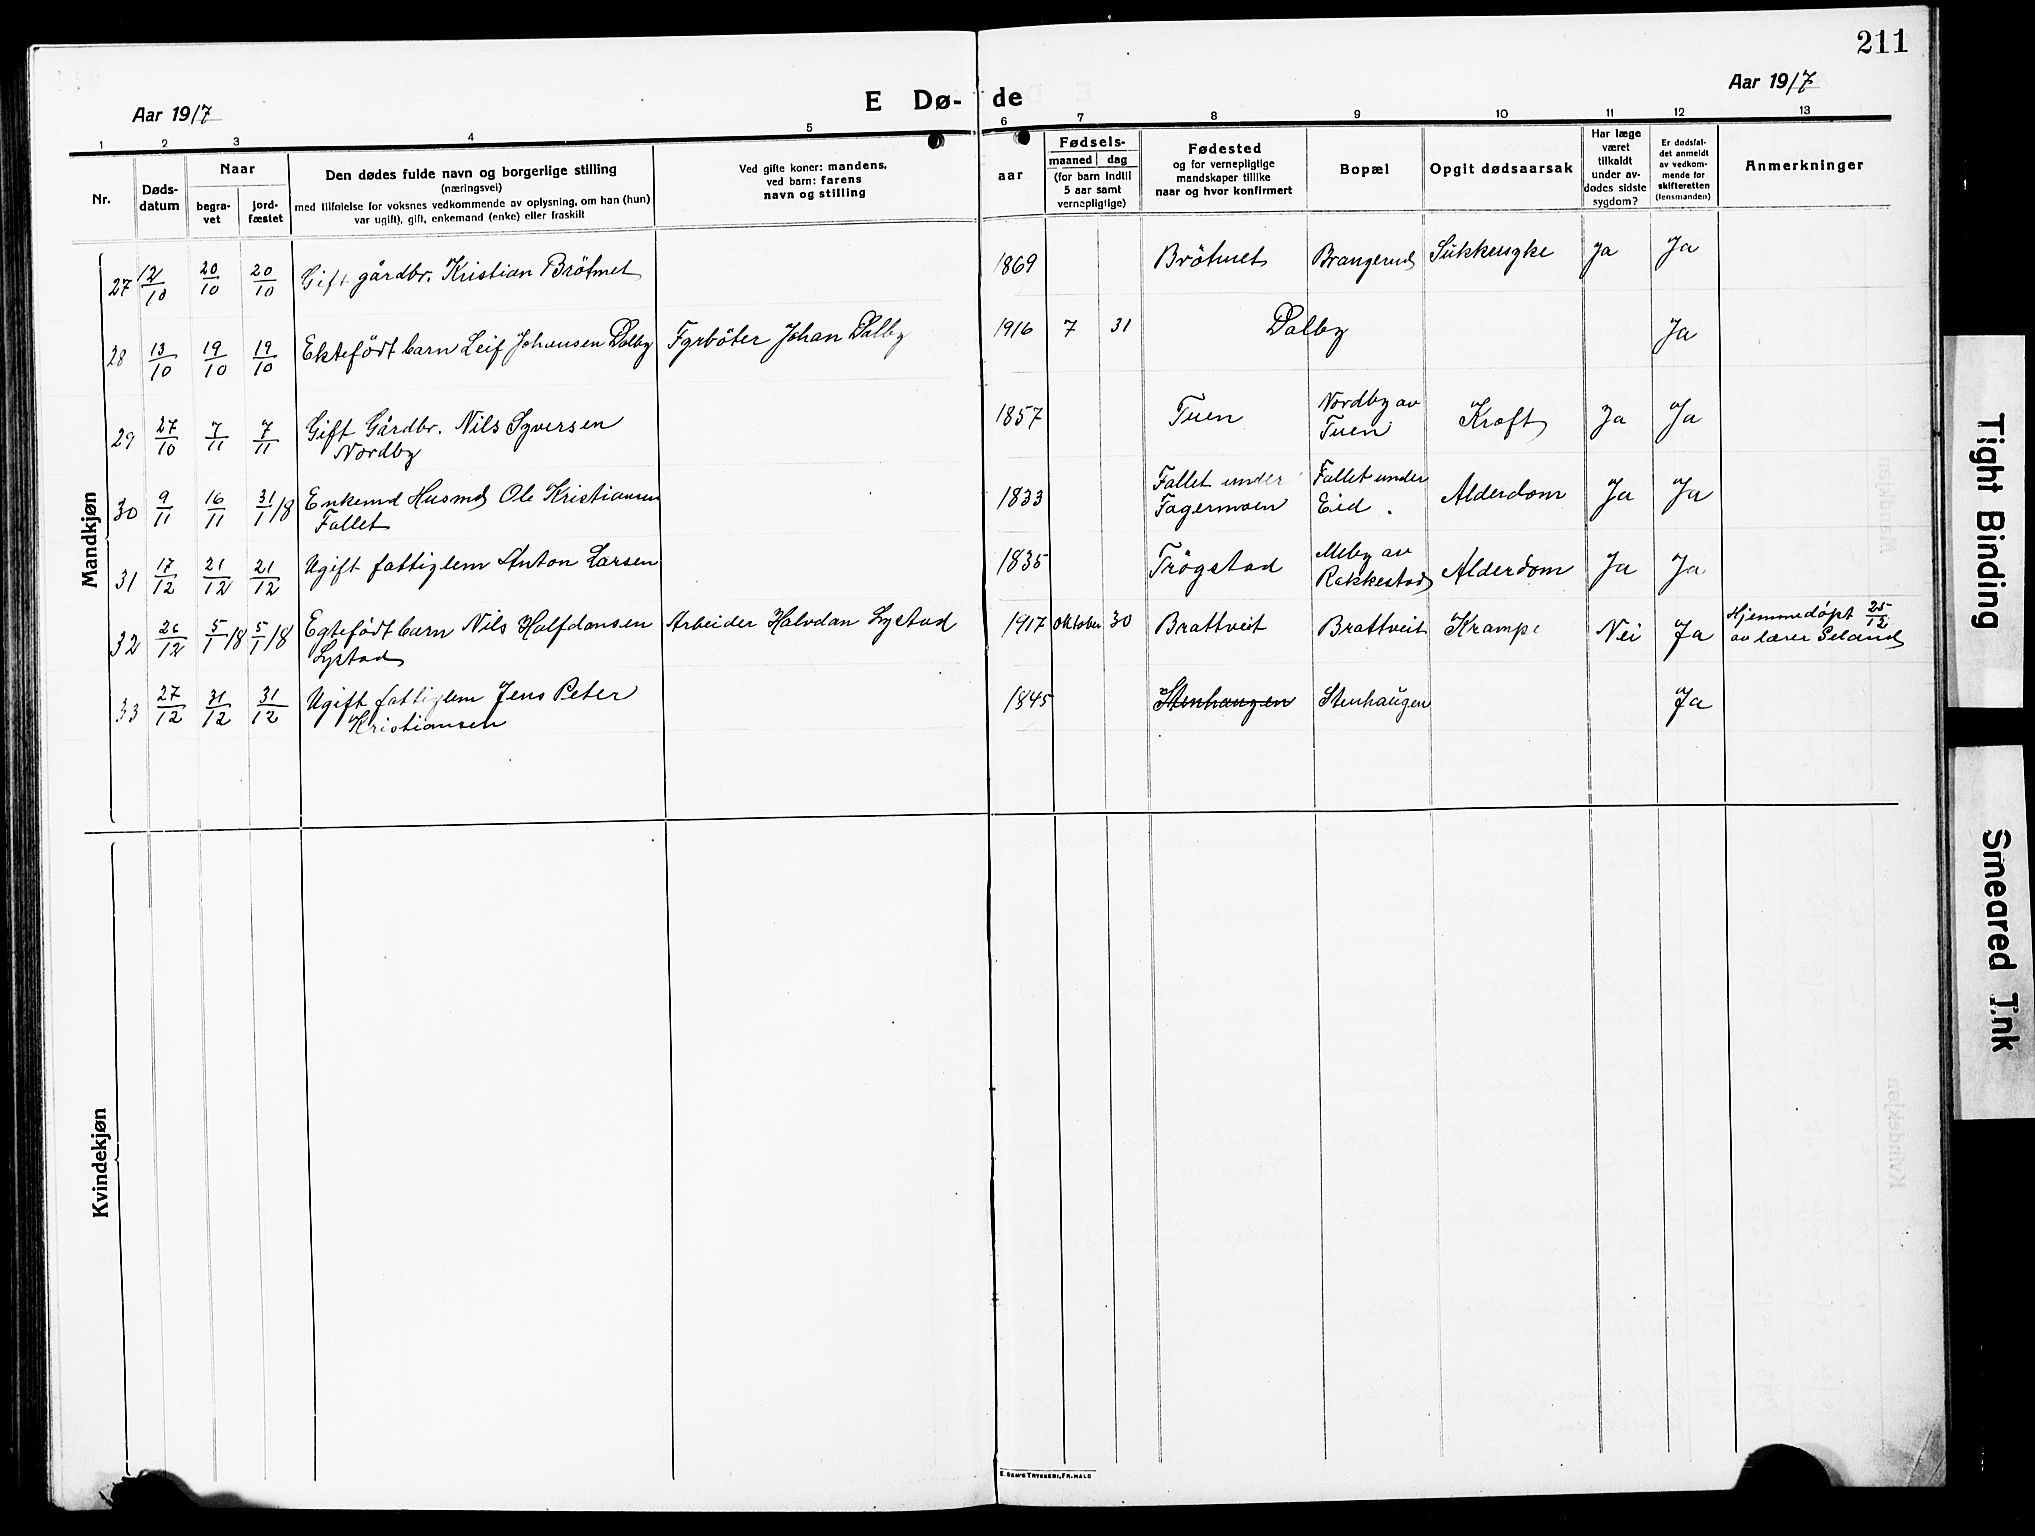 211
Aar 1917
E Dø- de
Aar 1917
1 2 3 4 5 6 7 8 9 10 11 12 13
Nr.
Døds-
datum
Naar
begra-
vet
jord-
fæstet
Den dødes fulde navn og borgerlige stilling
(næringsvei)
med tilføielse for voksnes vedkommende av oplysning, om han (hun)
var ugift), gift, enkemand (enke) eller fraskilt
Ved gifte koner: mandens,
ved barn: farens
navn og stilling
aar
Fødsels-
maaned dag
(for barn indtil
5 aar samt
vernepligtige)
Fødested
og for vernepligtige
mandskaper tillike
naar og hvor konfirmert
Bopæl
Opgit dødsaarsak
Har læge
været
tilkaldt
under av-
dødes sidste
sygdom?
Er dødsfal-
det anmeldt
av vedkom-
mende for
skifteretten
(lensmanden)
Anmerkninger
Mandkjøn
27 12/10 20/10 20/10 Gift gårdbr. Kristian Brötmet 1869 Brötmet Brangerud Sukkersyke Ja Ja
28 13/10 19/10 19/10 Ektefödt barn Leif Johansen Dalby Fyrböter Johan Dalby 1916 7 31 Dalby Ja
29 27/10 7/11 7/11 Gift Gårdbr. Nils Syversen 1857 Tuen Nordby av Kræft Ja Ja
Nordby Tuen
30 9/11 16/11 31/1 18 Enkemd Husmd Ole Kristiansen 1833 Fallet under Fallet under Alderdom Ja Ja
Fallet Fagermoen Eid
31 17/12 21/12 21/12 Ugift fattiglem Anton Larsen 1835 Trögstad Meby av Alderdom Ja Ja
Rakkestad
32 26/12 5/1 18 5/1 18 Egtefödt barn Nils Halfdansen Arbeider Halvdan Lystad 1917 Oktober 30 Brattveit Brattveit Krampe Nei Ja Hjemmedöpt 25/12
Lystad av lærer Seland
33 27/12 31/12 31/12 Ugift fattiglem Jens Peter 1845 Stenhaugen Stenhaugen Ja
Kristiansen
Kvindekjøn
E. SEM'S TRYKKERI, FR.HALD
Tight Binding
Smeared Ink